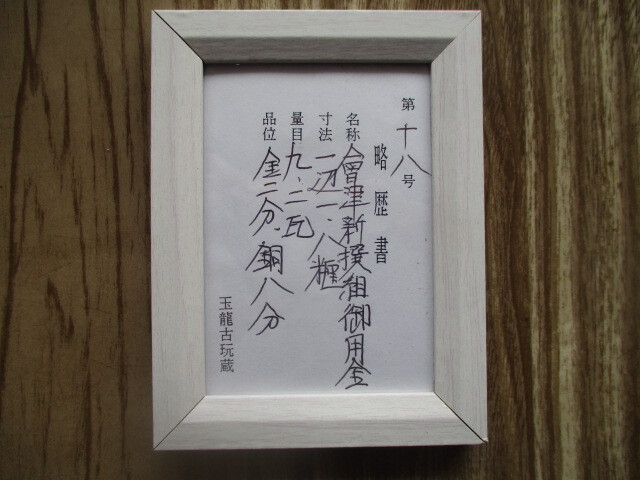 第十八号
略歴書
名称 會津新撰組御用金
寸法 一、八糎
量目 九、二瓦
品位 金二分、銅八分
玉龍古玩蔵